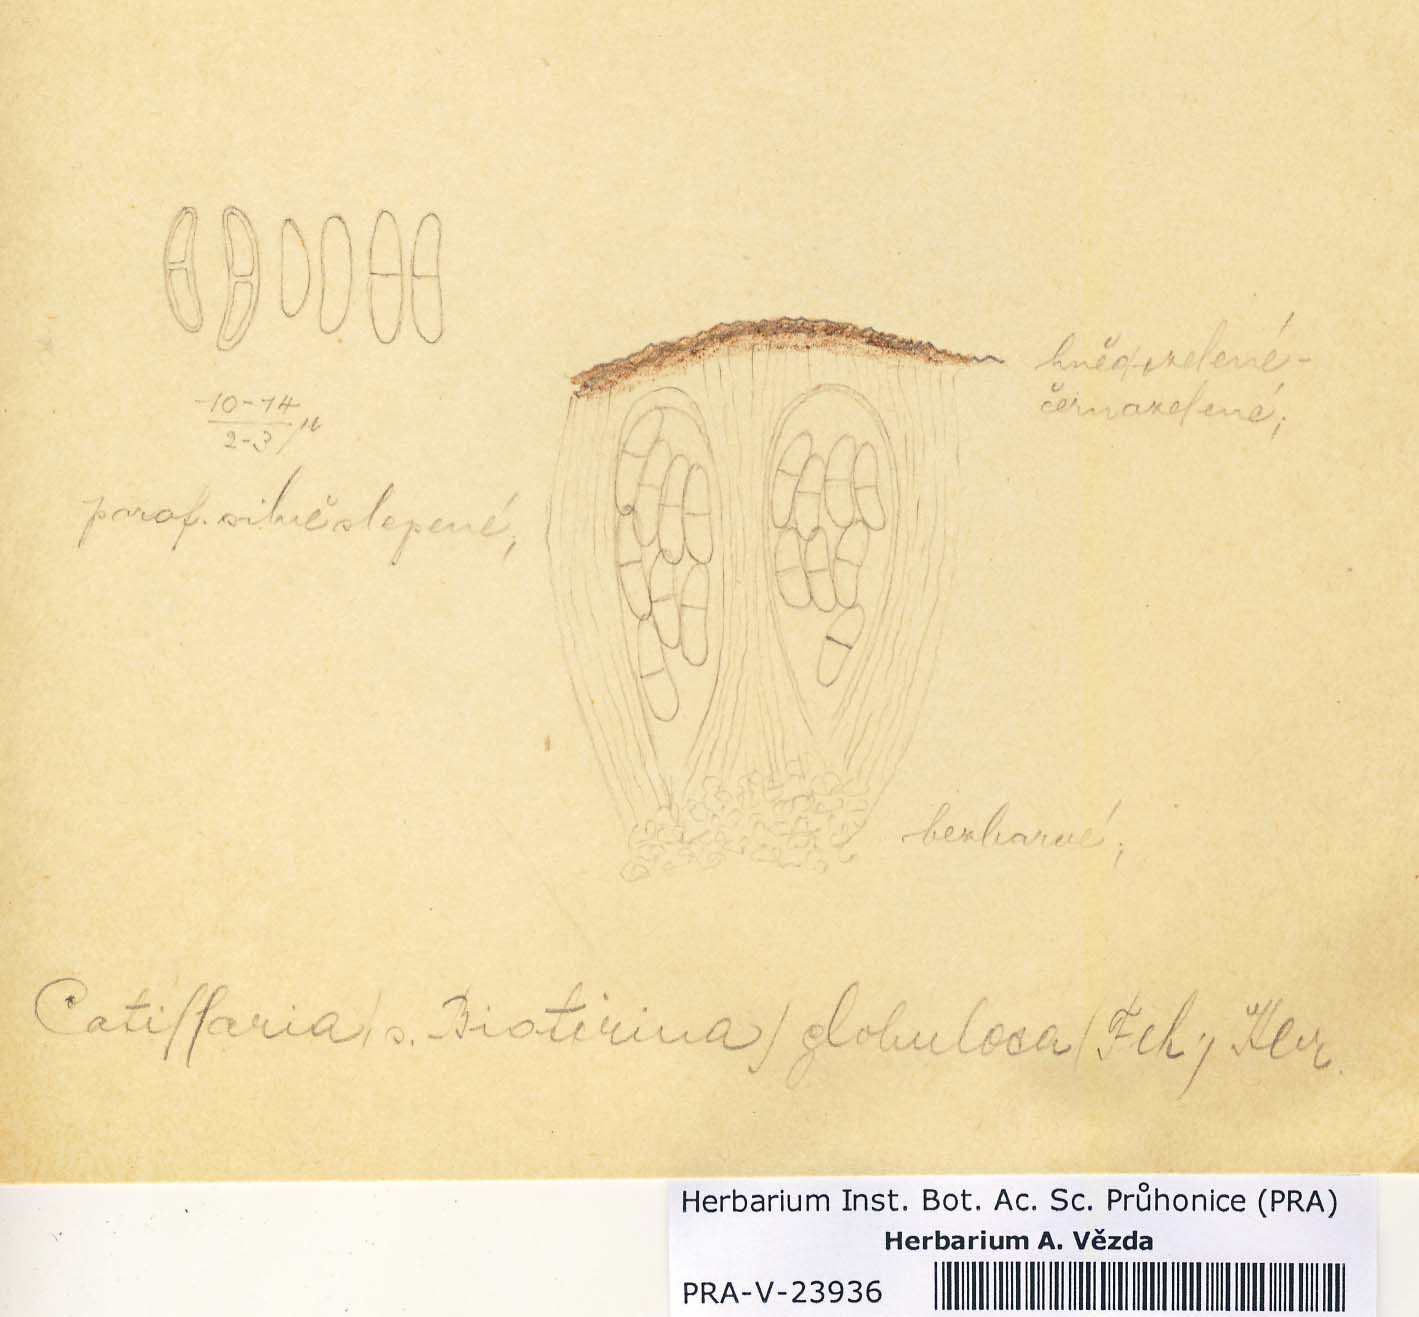 10-14
2-3/µ
hnědozelené-
černozelené;
paraf. silně slepené;
bezbarvé;
Catillaria /s. Biatorina/ globulosa /Flk;/
Herbarium Inst. Bot. Ac. Sc. Průhonice (PRA)
Herbarium A. Vězda
PRA-V-23936